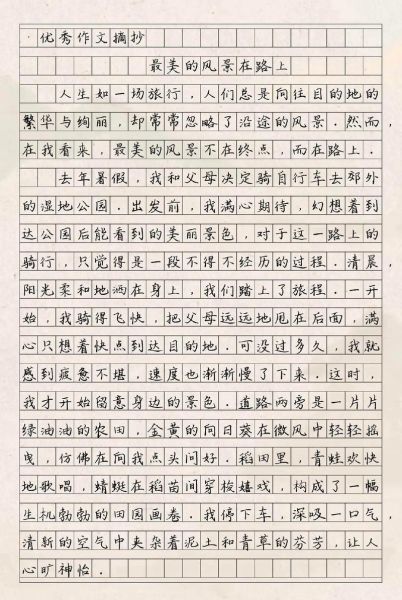 ·优秀作文摘抄
最美的风景在路上
人生如一场旅行，人们总是向往目的地的
繁华与绚丽，却常常忽略了沿途的风景．然而，
在我看来，最美的风景不在终点，而在路上．
去年暑假，我和父母决定骑自行车去郊外
的湿地公园．出发前，我满心期待，幻想着到
达公园后能看到的美丽景色，对于这一路上的
骑行，只觉得是一段不得不经历的过程．清晨，
阳光柔和地洒在身上，我们踏上了旅程．一开
始，我骑得飞快，把父母远远地甩在后面，满
心只想着快点到达目的地．可没过多久，我就
感到疲惫不堪，速度也渐渐慢了下来．这时，
我才开始留意身边的景色．道路两旁是一片片
绿油油的农田，金黄的向日葵在微风中轻轻摇
曳，仿佛在向我点头问好．稻田里，青蛙欢快
地歌唱，蜻蜓在稻苗间穿梭嬉戏，构成了一幅
生机勃勃的田园画卷．我停下车，深吸一口气，
清新的空气中夹杂着泥土和青草的芬芳，让人
心旷神怡．